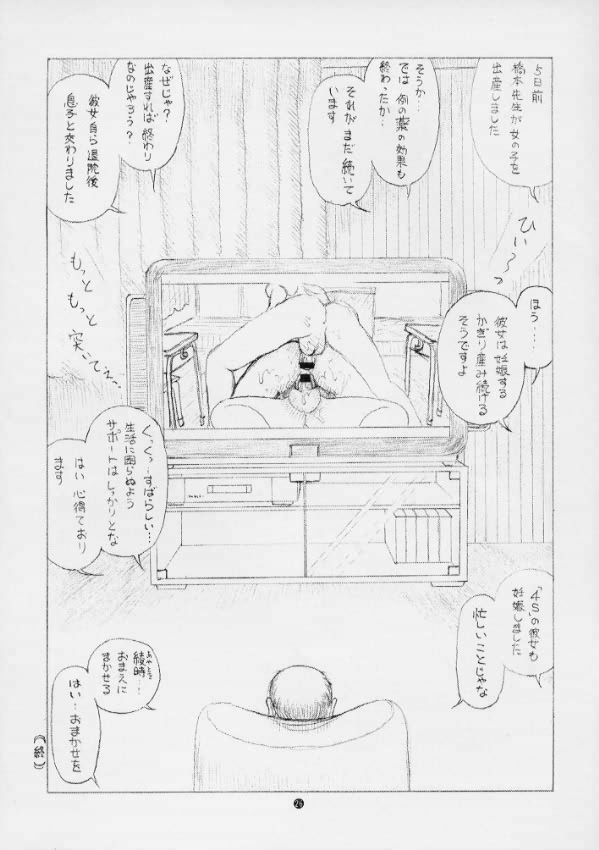 5日前
橋本先生が
女の子を
出産しました
そうか…
では例の薬の効果も
終わったか…
それがまだ続いて
います
なぜじゃ?
出産すれば終わり
なのじゃろう?
彼女自ら退院後
息子と交わりました
ひい〜〜っ
もっと
もっと
突いてぇ…
ほう…
彼女は妊娠する
かぎり産み続ける
そうですよ
くっくっ…すばらしい…
生活に困らぬよう
サポートはしっかりとな
はい 心得ており
ます
「4S」の彼女も
妊娠しました
忙しいことじゃな
綾時…
おまえに
まかせる
はい…おまかせを
(終)
26